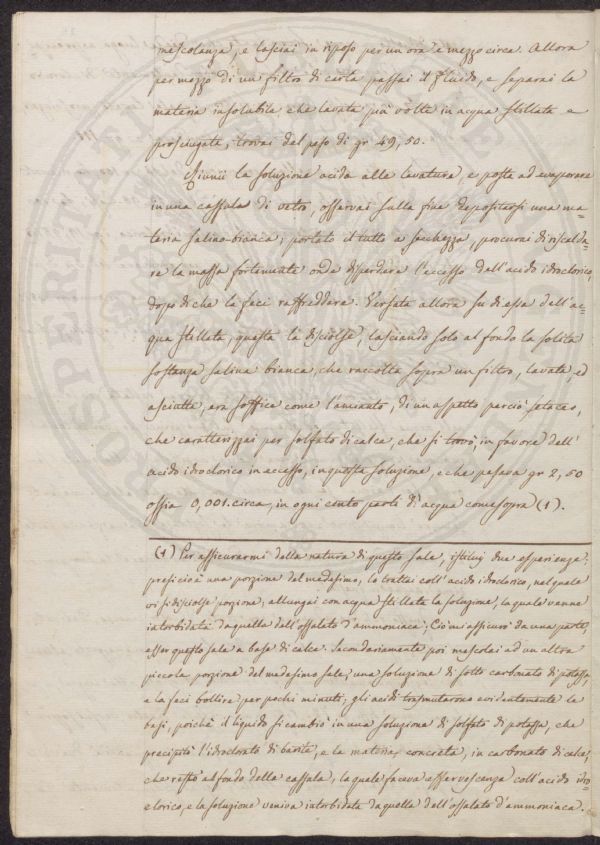 mescolanza, e lasciai in riposo per un ora e mezzo circa. Allora
per mezzo di un filtro di carta passai il fluido, e separai la
materia insolubile che lavata più volte in acqua stillata e
prosciugata, trovai del peso di gr 49,50.
Riunii la soluzione acida alle lavature, e poste ad evaporare
in una cassula di vetro, osservai sulla fine depositarsi una ma=
teria salino-bianca; portato il tutto a secchezza, procurai di riscalda=
re la massa fortemente onde disperdere l'eccesso dell'acido idroclorico,
dopo di che la feci raffreddare. Versata allora su di essa dell'ac=
qua stillata, questa la disciolse, lasciando solo al fondo la solita
sostanza salina bianca, che raccolta sopra un filtro, lavata, ed
asciutta, era soffice come l'amianto, di un aspetto perciò setaceo,
che caratterizzai per solfato di calce, che si trovò, in favore dell'
acido idroclorico in eccesso, in questa soluzione, e che pesava gr 2,50
ossia 0,001. circa, in ogni cento parti d'acqua come sopra (1).
(1) Per assicurarmi della natura di questo sale, istituj due esperienze:
presi cioè una porzione del medesimo, lo trattai coll'acido idroclorico, nel quale
vi si disciolse porzione; allungai con acqua stillata la soluzione, la quale venne
intorbidata da quella dell'ossalato d'ammoniaca; Ciò mi assicurò da una parte,
esser questo sale a base di calce. Secondariamente poi mescolai ad un altra
piccola porzione del medesimo sale, una soluzione di sotto carbonato di potassa,
e la feci bollire per pochi minuti; gli acidi trasmutarono evidentemente le
basi, poichè il liquido si cambiò in una soluzione di solfato di potassa, che
precipitò l'idroclorato di barite, e la materia concreta, in carbonato di calce,
che restò al fondo della cassula, la quale faceva effervescenza coll'acido idro
clorico, e la soluzione veniva intorbidata da quella dell'ossalato d'ammoniaca.